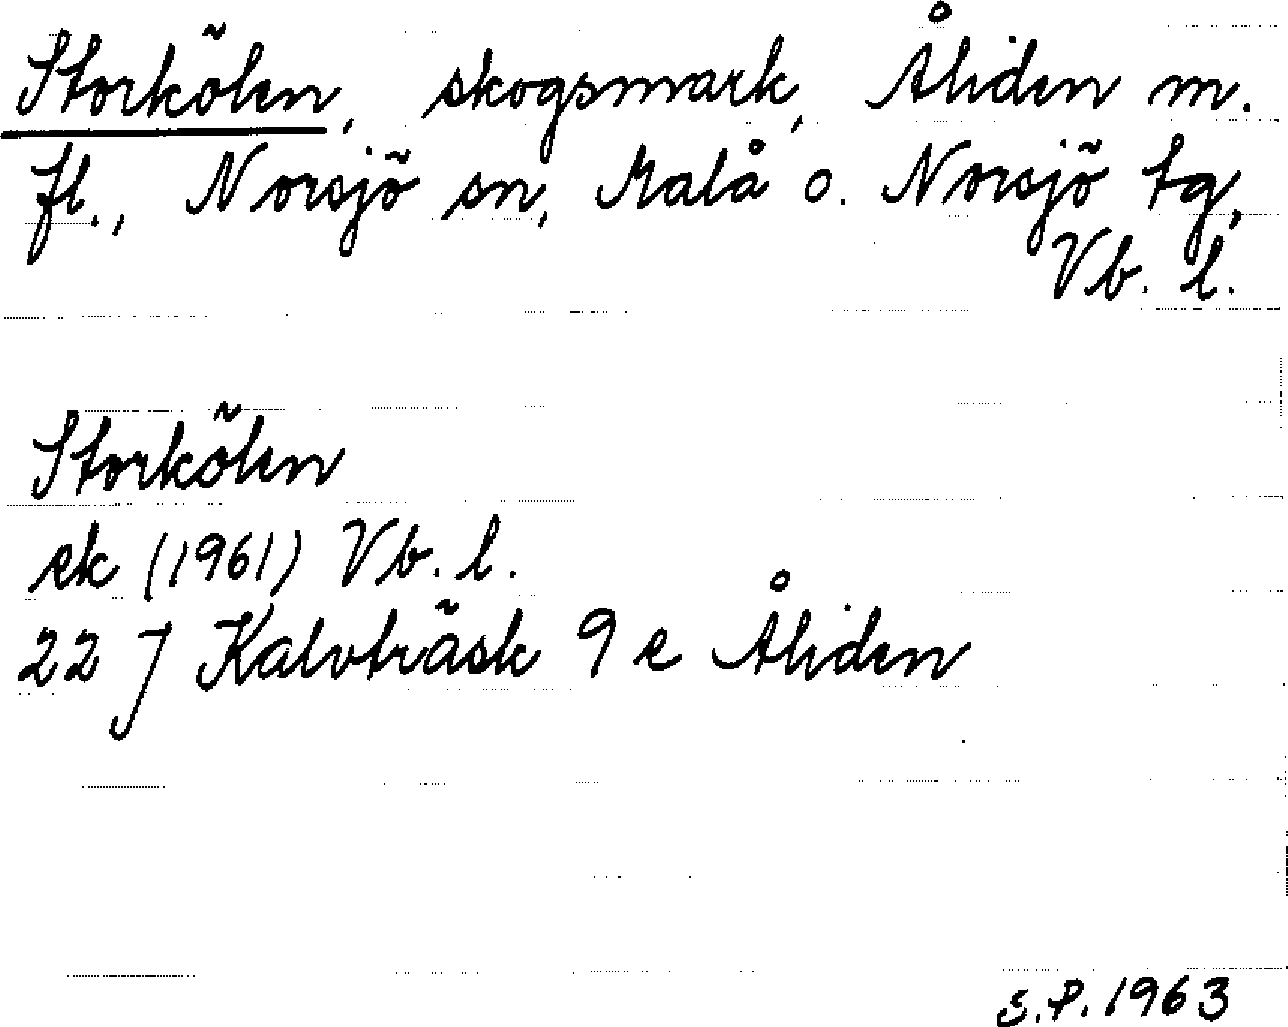 Storkölen, skogsmark, Åliden m.
fl., Norsjö sn, Malå o. Norsjö tg,
Vb. l.
Storkölen
ek (1961) Vb. l.
22 J Kalvträsk 9 e Åliden
S.P. 1963